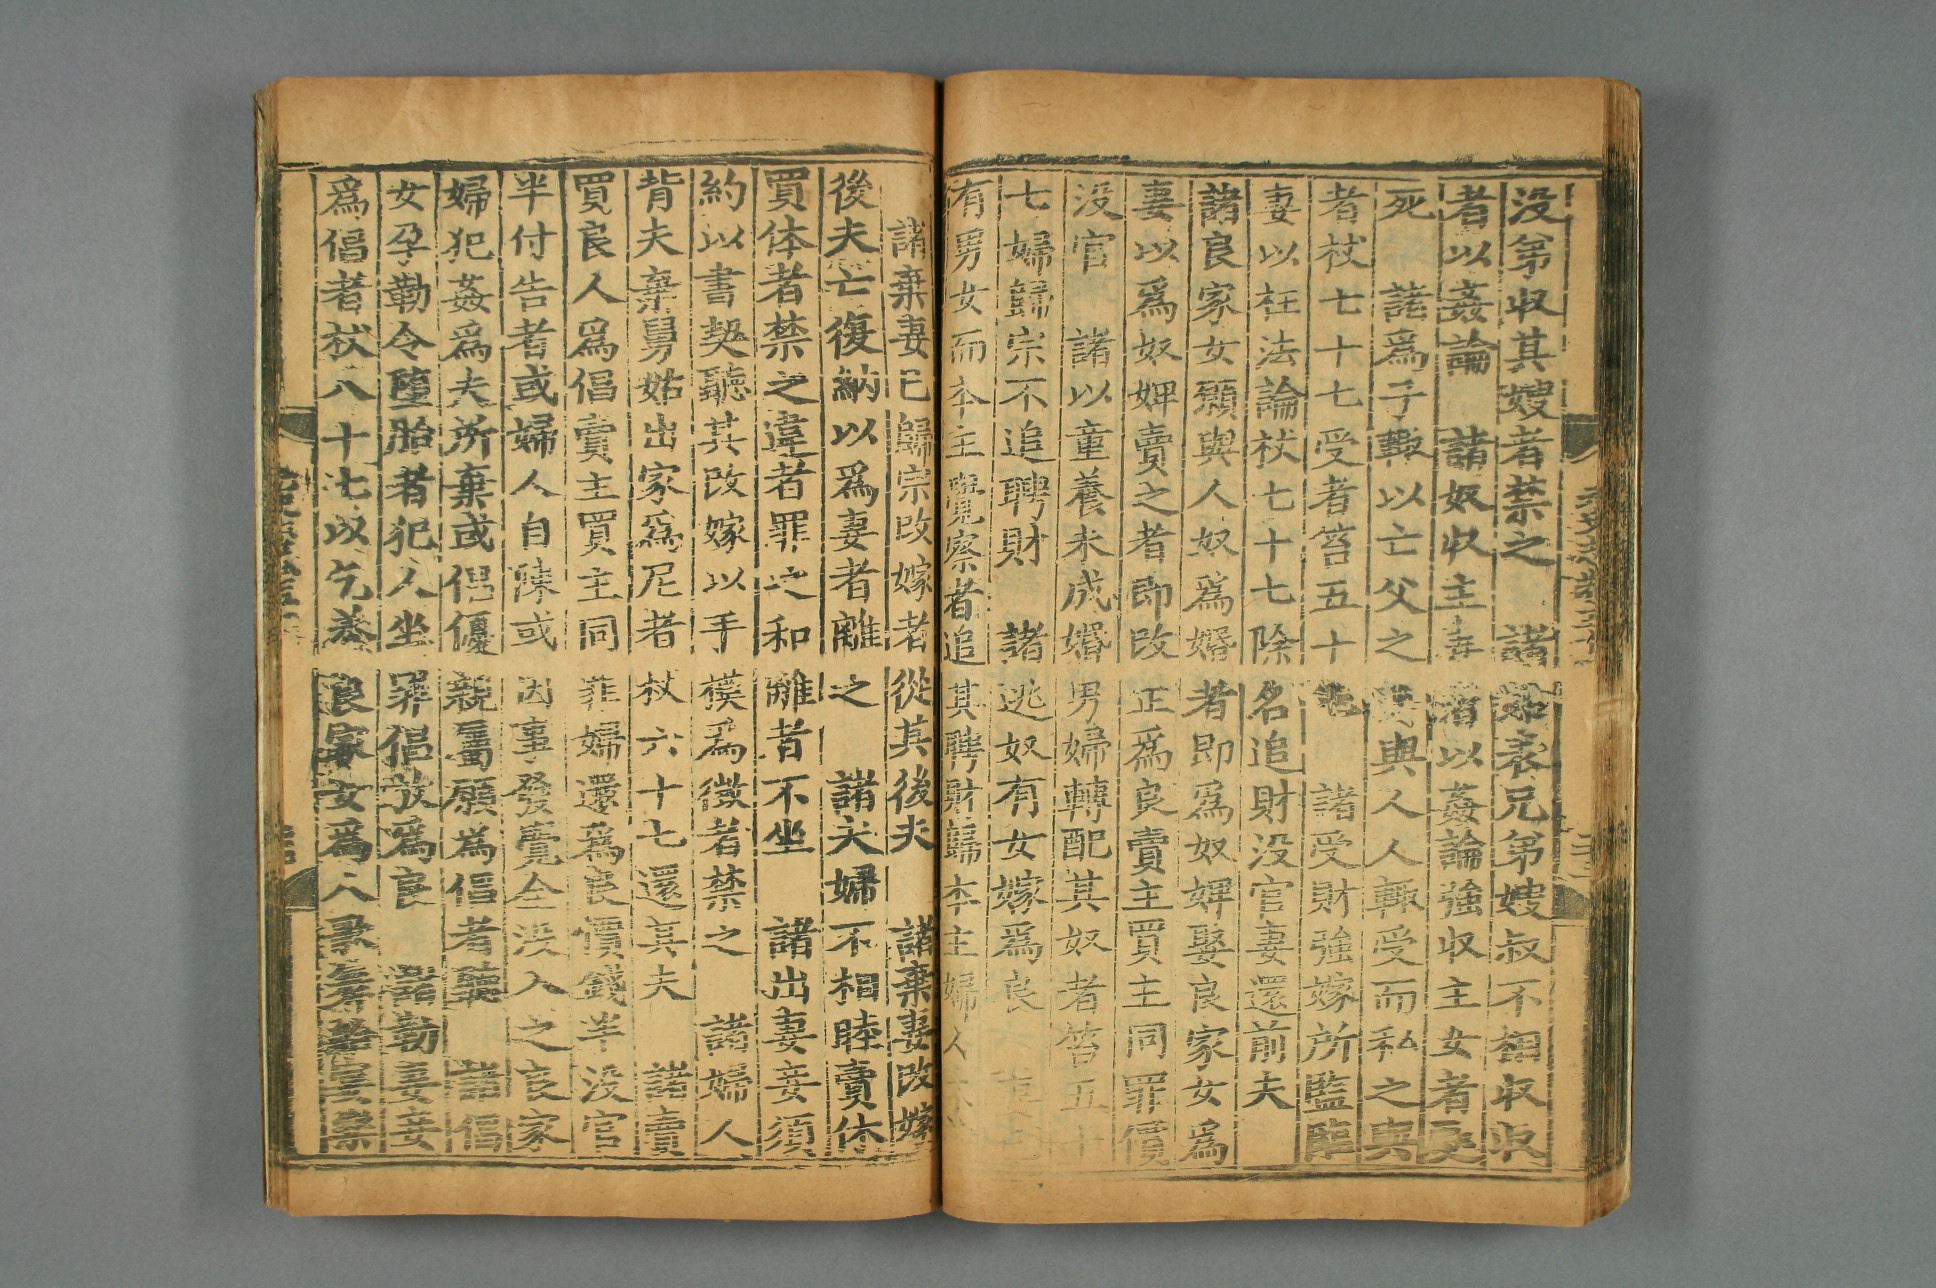 没弟収其嫂者禁之　諸姑表兄弟嫂叔不相収収
者以姦論　諸奴収主妻者以姦論強収主女者処
死　諸爲子輙以亡父之妾與人人輙受而私之與
者杖七十七受者笞五十七　諸受財強嫁所監臨
妻以枉法論杖七十七除名追財没官妻還前夫
諸良家女願與人奴爲婚者即爲奴婢娶良家女爲
妻以爲奴婢賣之者即改正爲良賣主買主同罪價
没官　諸以童養未成婚男婦轉配其奴者笞五十
七婦歸宗不追聘財　諸逃奴有女嫁爲良
有男女而本主覺察者追其聘財歸本主婦人
諸棄妻已歸宗改嫁者從其後夫　諸棄妻改嫁
後夫亡復納以爲妻者離之　諸夫婦不相睦賣休
買休者禁之違者罪之和離者不坐　諸出妻妾須
約以書契聽其改嫁以手模爲徴者禁之　諸婦人
背夫棄舅姑出家爲尼者杖六十七還其夫　諸賣
買良人爲倡賣主買主同罪婦還爲良價錢半没官
半付告者或婦人自陳或因事發覺全没入之良家
婦犯姦爲夫所棄或倡優親屬願爲倡者聽　諸倡
女孕勒令墮胎者犯人坐罪倡放爲良　諸勒妻妾
爲倡者杖八十七以乞養良家女爲人